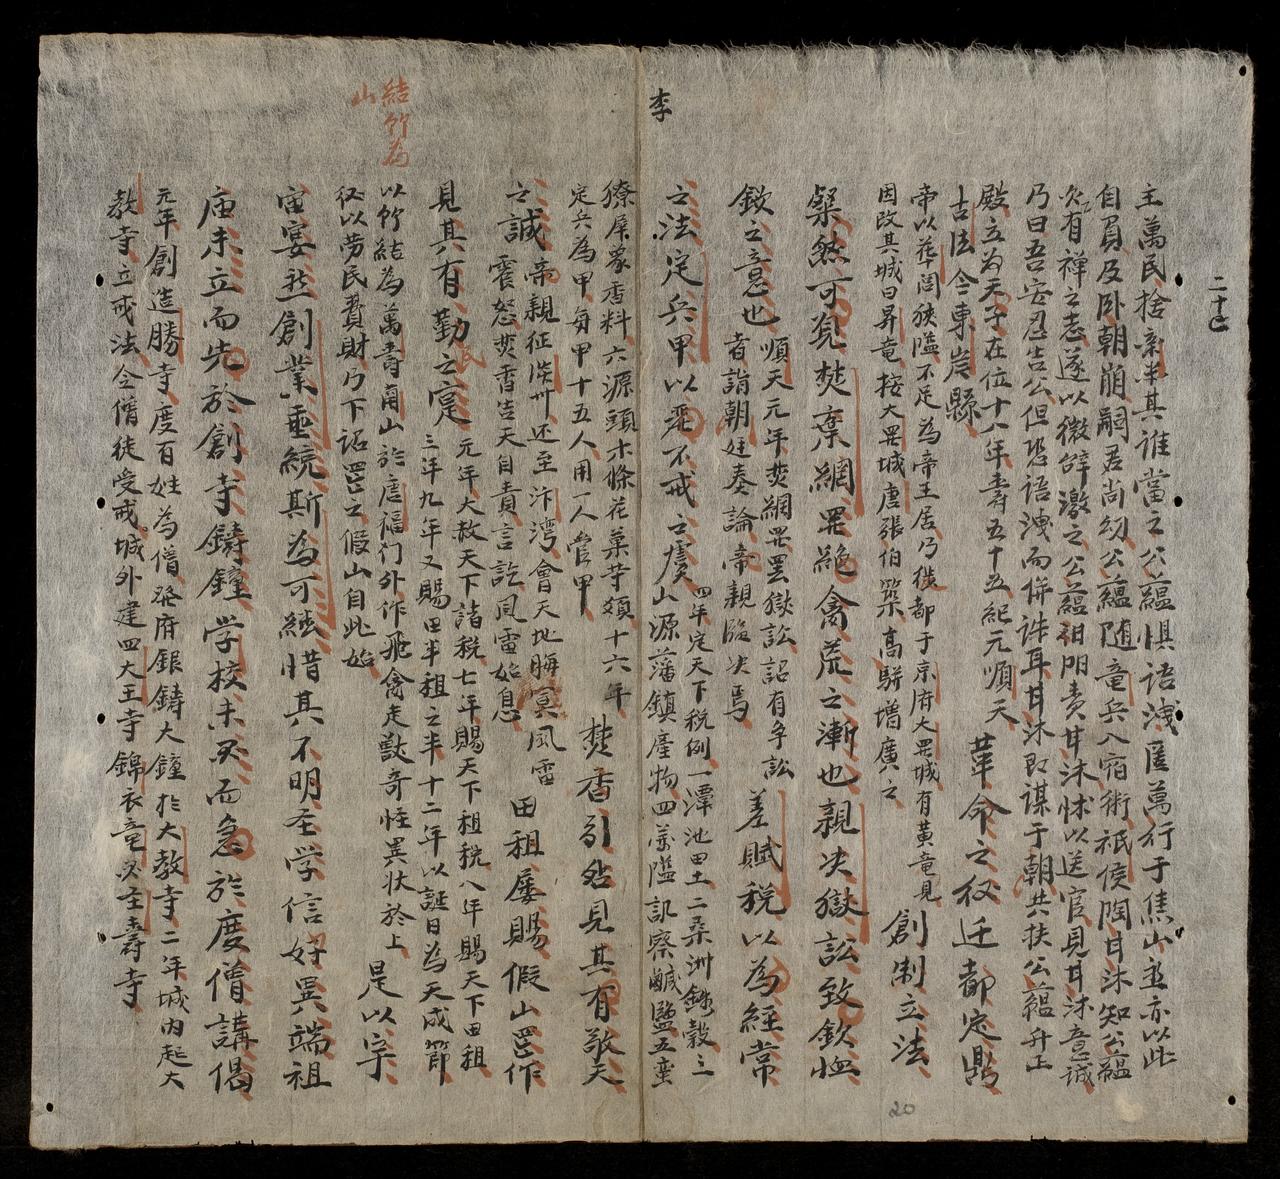 二十
李
主萬民捨親其誰當之公蘊惧语洩匿萬行于焦山至亦以此
自負及卧朝崩嗣君尚幼公蘊随竜兵入宿衛祇侯陶甘沐知公蘊
有禅之志遂以微辞激之公蘊詳陽责甘沐怵以送官見甘沐意誠
乃曰吾安忍告公但恐语洩而併诛耳甘沐即谋于朝共扶公蘊升正
殿立为天子在位十八年壽五十五紀元順天
古法今東岸縣
革命之初迁都定鼎
帝以花閭狹隘不足為帝王居乃徙都于京府大罗城有黄竜見
因改其城曰昇竜按大罗城唐張伯築高駢增廣之
創制立法
粲然可覌焚棄網罟絶禽荒之漸也親决獄訟致欽恤
欽之意也
順天元年焚網罟罷獄訟詔有争訟
者詣朝廷奏論帝親臨决焉
差賦税以為經常
之法定兵甲以飛不戒之虞
四年定天下税例一潭池田土二桑洲錢穀三
山源藩鎮産物四関隘訊察鹹鹽五蛮
獠犀象香料六源頭木條花菓芋頻十六年
定兵為甲每甲十五人用一人管甲
焚香引咎見其有敬天
之誠
帝親征演州还至汴湾會天地晦冥風雷
震怒焚香告天自責言訖風雷始息
田租屡賜假山罢作
見其有勤民之寔
元年大赦天下諸税七年賜天下租税八年賜天下田租
三年九年又賜田半租之半十二年以誕日為天成節
以竹結为萬寿南山於广福门外作飛禽走獣奇怪異状於上
後以劳民費財乃下诏罢之假山自此始
是以宇
宙宴然創業垂統斯為可継惜其不明圣学信好異端祖
庙未立而先於創寺鑄鐘学校未及而急於度僧講偈
元年創造勝寺度百姓為僧發府銀鋳大鐘於大教寺二年城内起大
教寺立戒法令僧徒受戒城外建四大王寺錦衣竜及圣壽寺
結竹為
山
20